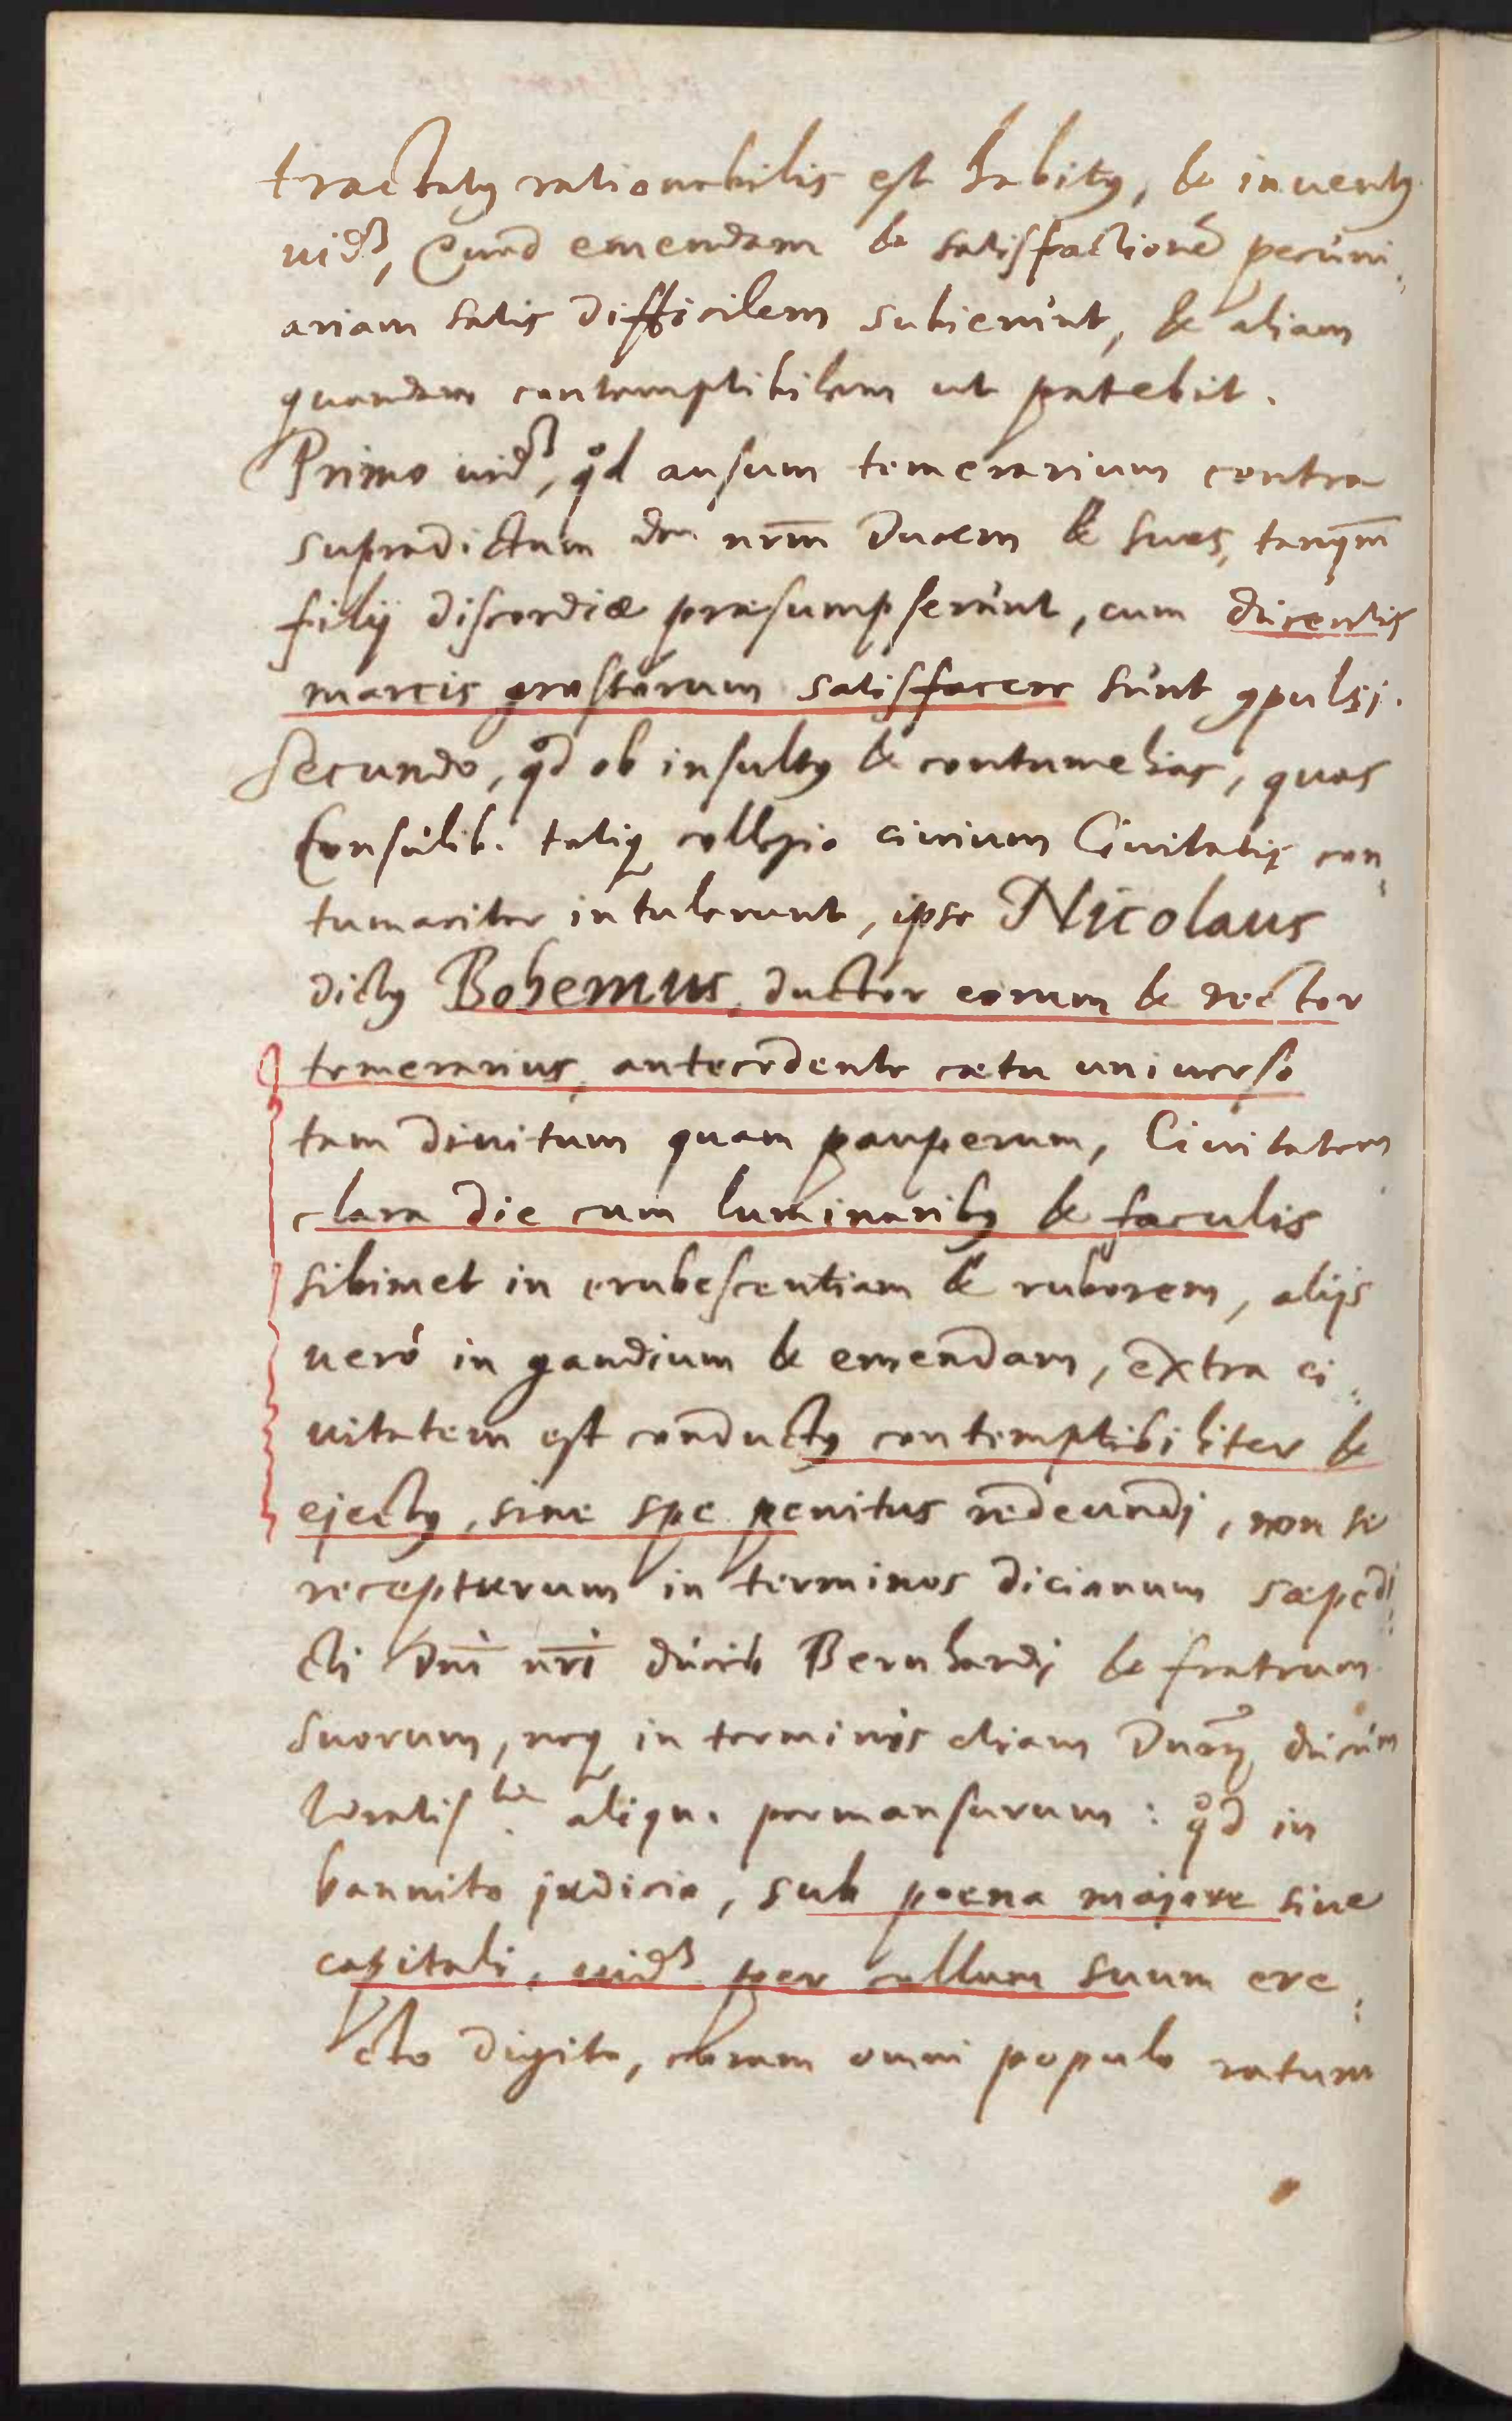 tractatꝰ rationabilis est habitꝰ, & inventꝰ
uidꝫ, Quod emendam & satisfactionē pecuni„
ariam satis difficilem subierunt, & aliam
quandam contemptibilem ut patebit.
Primo uidꝫ, qd ausum temerarium contra
supradictum dnm nr̄m Ducem & suos, tanqm̄
filij discordiæ præsumpserunt, cum ducentis
marcis grossorum satisfacere sunt ꝯpulsi.
Secundo, qd ob insultꝰ & contumelias, quas
Consulib. totiqꝫ collegio ciuium Ciuitatis con„
tumaciter intulerunt, ipse Nicolaus
dictꝰ Bohemus, ductor eorum & rector
temerarius, antecedente cœtu uniuerso
tam diuitum quam pauperum, Ciuitatem
clara die cum luminaribꝰ & faculis
sibimet in erubescentiam & ruborem, alijs
uerò in gaudium & emendam, extra ci„
uitatem est conductꝰ contemptibiliter &
ejectꝰ, sine spe penitus redeundi, non se
recepturum in terminos dicionum sæpedi„
cti dn̄i nr̄i ducis Bernhardj & fratrum
suorum, neqꝫ in terminis etiam Dnoꝝ ducum
aliqu. permansurum: qd in
bannito judicio, sub poena majore siue
capitali, uidꝫ per collum suum ere„
cto digito, coram omni populo ratum